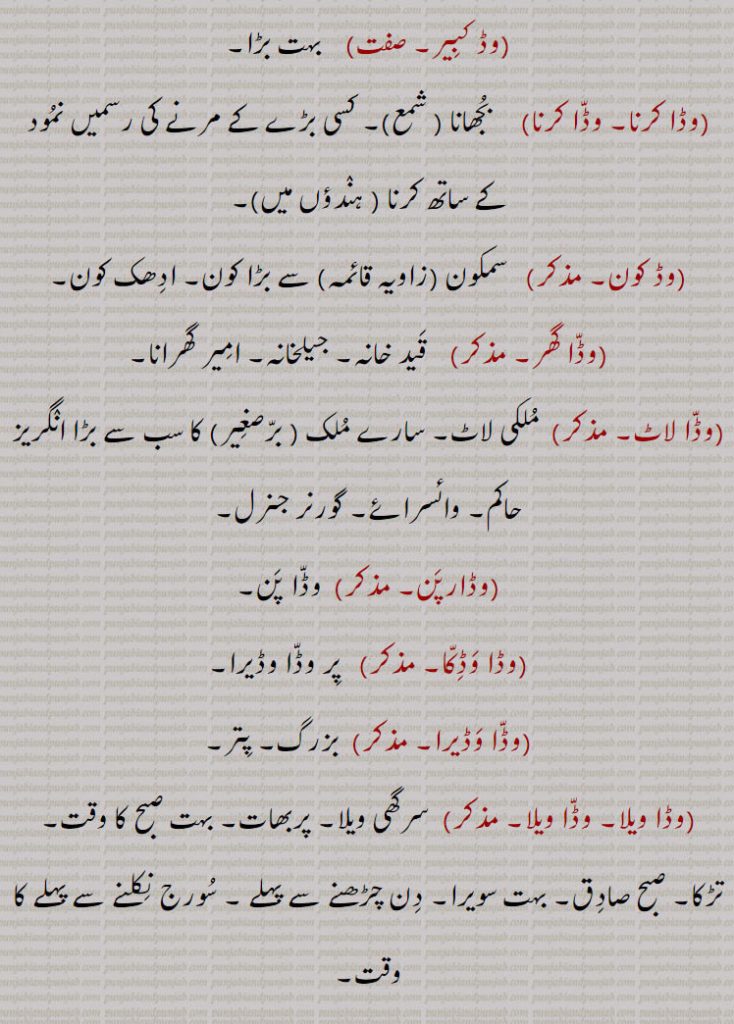 (وڈ کبِیر۔ صفت) بہت بڑا۔
(وڈا کرنا۔ وڈّا کرنا) بُجھانا ( شمع)۔ کسی بڑے کے مرنے کی رسمیں نمُود
کے ساتھ کرنا ( ہنْدؤں میں)۔
(وڈ کون۔ مذکر) سمکون (زاویہ قائمہ) سے بڑا کون۔ ادِھک کون۔
(وڈّا گھر۔ مذکر) قَید خانہ۔ جیلخانہ۔ امِیر گھرانا۔
(وڈّا لاٹ۔ مذکر) مُلکی لاٹ۔ سارے مُلک ( برّصغِیر) کا سب سے بڑا انْگریز
حاکم۔ وائسرائے۔ گورنر جنرل۔
(وڈارپَن۔ مذکر) وڈّا پَن۔
(وڈا وَڈِکّا۔ مذکر) پِر وڈّا وڈیرا۔
(وڈّا وَڈیرا۔ مذکر) بزرگ۔ پِتر۔
(وڈا ویلا۔ وڈّا ویلا۔ مذکر) سرگھی ویلا۔ پربھات۔ بہت صبح کا وقت۔
تڑکا۔ صبح صادِق۔ بہت سویرا۔ دِن چڑھنے سے پہلے ۔ سُورج نِکلنے سے پہلے کا
وقت۔